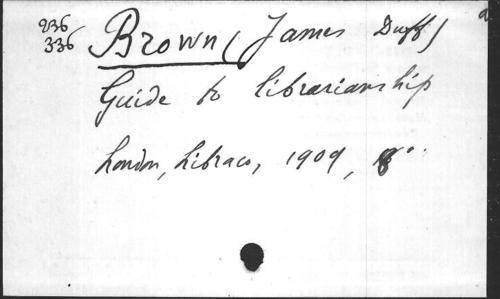 236
336
Brown (James Duff)
Guide to librarianship
London, Libraco, 1909, 8°.